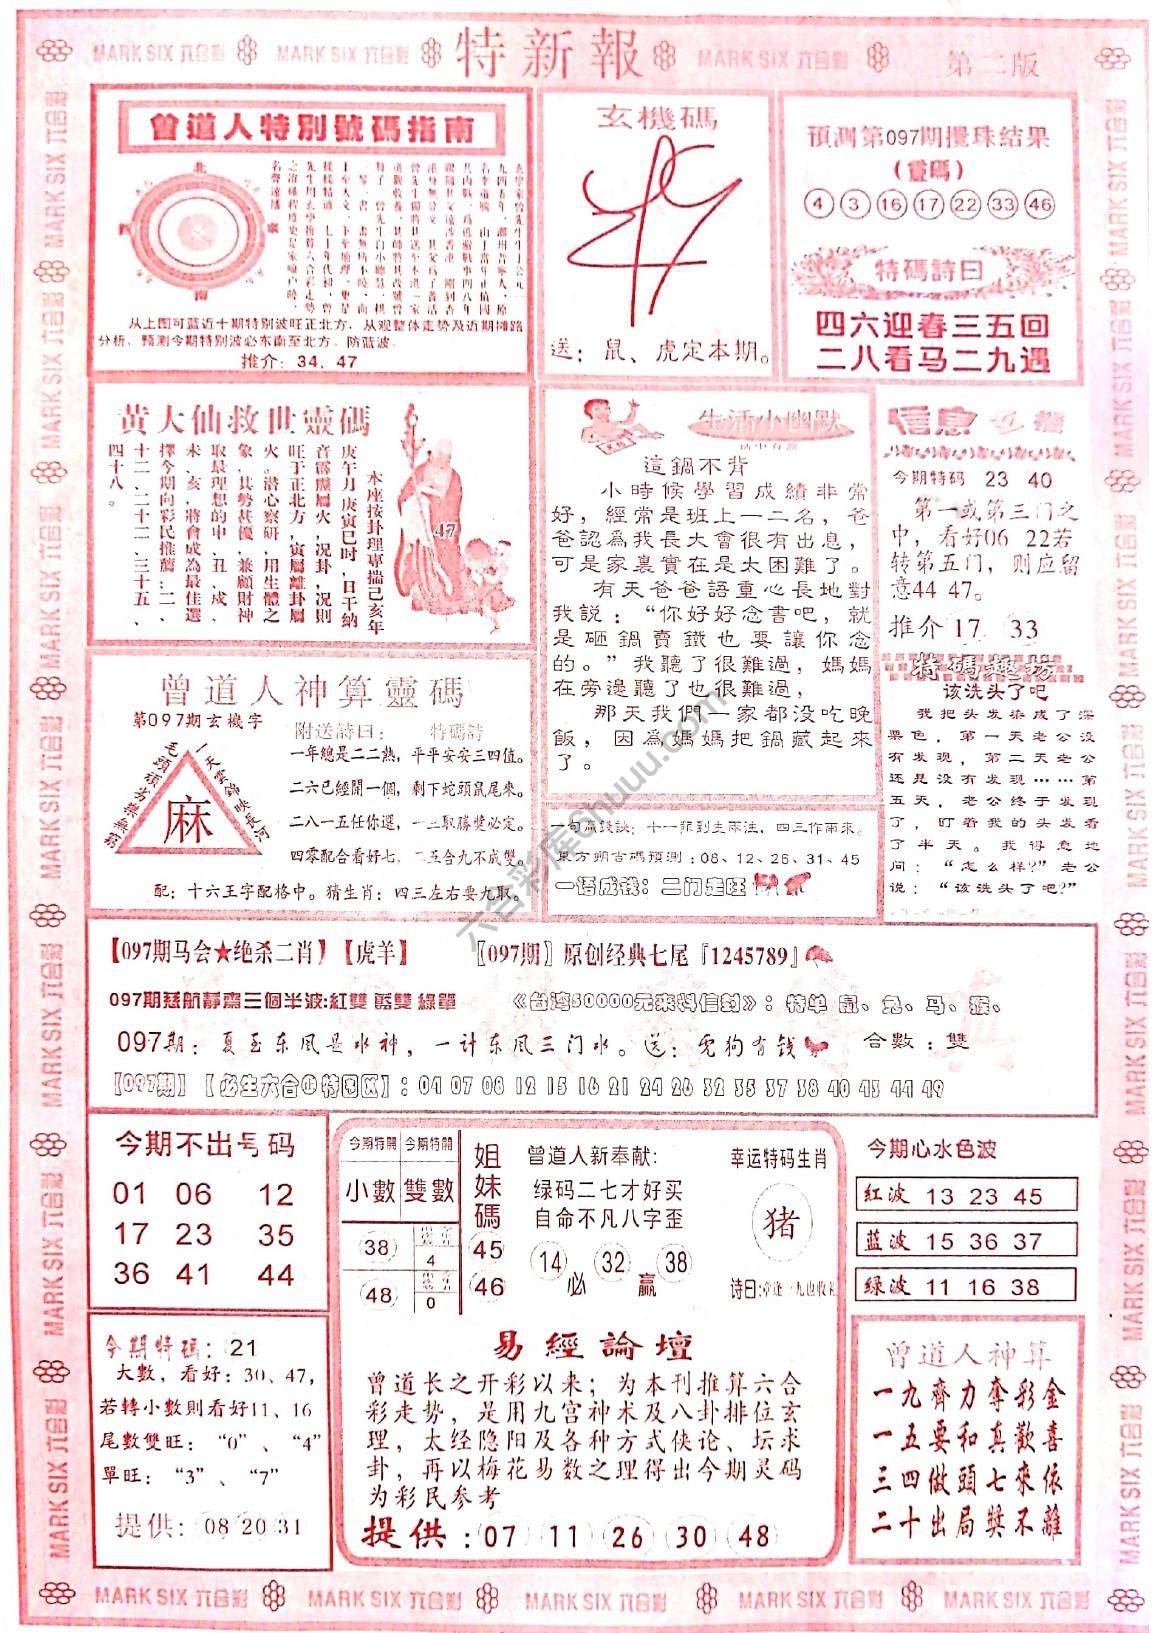 MARK SIX 六合彩 MARK SIX 六合彩 特新報 MARK SIX 六合彩 第二版
曾道人特別號碼指南
北
南
从上图可蓝近十期特别波旺正北方，从观整体走势及近期摊路
分析，预测今期特别波必东南至北方，防蓝波。
推介：34、47
玄機碼
送：鼠、虎定本期。
預測第097期攪珠結果
(靈碼)
4 3 16 17 22 33 46
特碼詩曰
四六迎春三五回
二八看马二九遇
黃大仙救世靈碼
本座按卦理專揣己亥年
庚午月庚寅巳时，日干納
音霹靂屬火，况卦，况則
旺于正北方，寅屬離卦屬
火。潜心察研，用生體之
象，其勢甚優，兼顧財神
取最理想的申、丑、戌、
未、亥，將會成為最佳選
擇今期向彩民推薦：二、
十二、二十二、三十五、
四十八。
47
生活小幽默
這鍋不背
小時候學習成績非常
好，經常是班上一二名，爸
爸認為我長大會很有出息，
可是家裏實在是太困難了。
有天爸爸語重心長地對
我説：“你好好念書吧，就
是砸鍋賣鐵也要讓你念
的。”我聽了很難過，媽媽
在旁邊聽了也很難過，
那天我們一家都没吃晚
飯，因為媽媽把鍋藏起來
了。
信息玄機
今期特码 23 40
第一或第三门之
中，看好06 22若
转第五门，则应留
意44 47。
推介17 33
特碼趣坊
该洗头了吧
我把头发染成了深
栗色，第一天老公没
有发现，第二天老公
还是没有发现……第
五天，老公终于发现
了，盯着我的头发看
了半天。我得意地
问：“怎么样?”老公
说：“该洗头了吧?”
曾道人神算靈碼
第097期玄機字
麻
附送詩曰： 特碼詩
一年總是二二熱，平平安安三四值。
二六已經開一個，剩下蛇頭鼠尾來。
二八一五任你選，一二取勝獎必定。
四零配合看好七，二五合九不成雙。
配：十六王字配格中。猜生肖：四三左右要九取。
一句贏錢訣：十一乖到主兩注，四三作兩来。
東方朔古碼預測：08、12、26、31、45
一语成钱：二门走旺
【097期马会★绝杀二肖】【虎羊】 〖097期〗原创经典七尾『1245789』
097期慈航靜齋三個半波:紅雙 藍雙 綠單 《台湾50000元来料信封》：特单 鼠、兔、马、猴、
097期：夏至东风是水神，一计东风三门水。送：兔狗有钱 合數：雙
【097期】【必生六合④特圈区】：04 07 08 12 15 16 21 24 26 32 35 37 38 40 43 44 49
今期不出号码
01 06 12
17 23 35
36 41 44
今期特開 今期特開
小數 雙數
38 4
48 0
姐妹碼
45
46
曾道人新奉献:
绿码二七才好买
自命不凡八字歪
14 32 38
必 赢
幸运特码生肖
猪
今期心水色波
紅波 13 23 45
蓝波 15 36 37
绿波 11 16 38
今期特碼：21
大數，看好：30、47，
若轉小數則看好11、16
尾數雙旺：“0”、“4”
單旺：“3”、“7”
提供：08 20 31
易經論壇
曾道长之开彩以来；为本刊推算六合
彩走势，是用九宫神术及八卦排位玄
理，太经隐阳及各种方式侠论、坛求
卦，再以梅花易数之理得出今期灵码
为彩民参考
提供：07 11 26 30 48
曾道人神算
一九齊力奪彩金
一五要和真歡喜
三四做頭七來依
二十出局獎不離
MARK SIX 六合彩 MARK SIX 六合彩 MARK SIX 六合彩 MARK SIX 六合彩 MARK SIX 六合彩